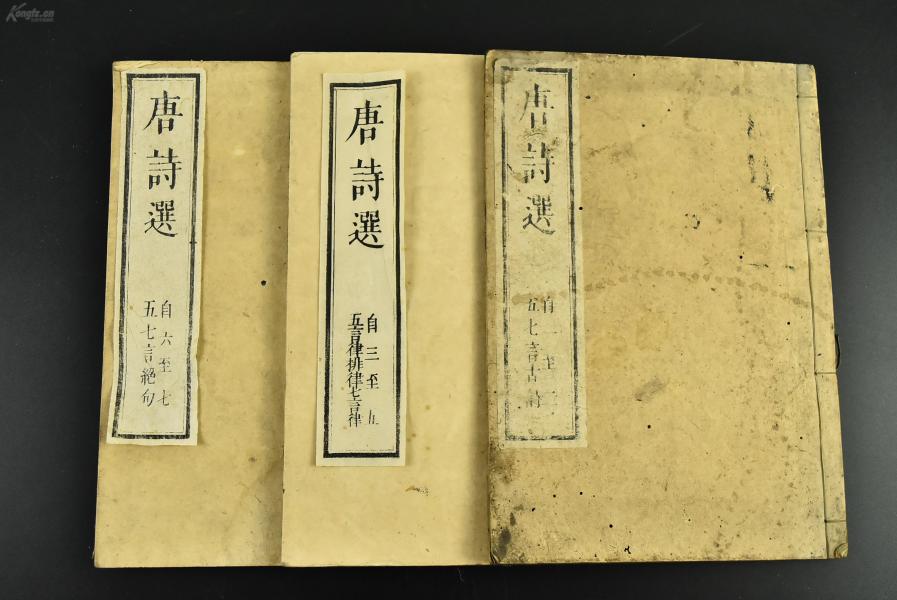 唐詩選
自一至二
五七言古詩
唐詩選
自三至五
五言律排律七言律
唐詩選
自六至七
五七言絕句
Kongfz.cn